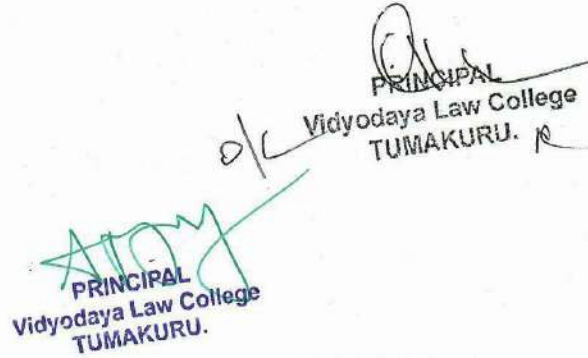 PRINCIPAL
Vidyodaya Law College
TUMAKURU.
o/c
PRINCIPAL
Vidyodaya Law College
TUMAKURU.